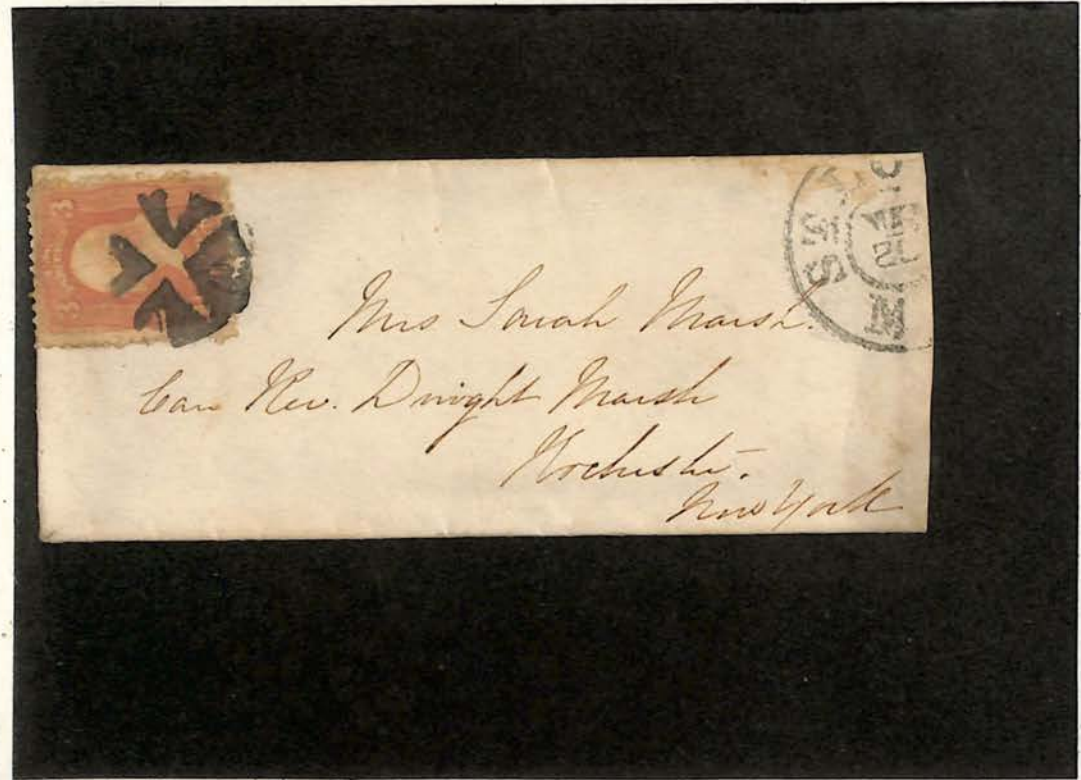 3 3
Mrs Sarah Marsh.
Care Rev. Dwight Marsh
Rochester.
New York